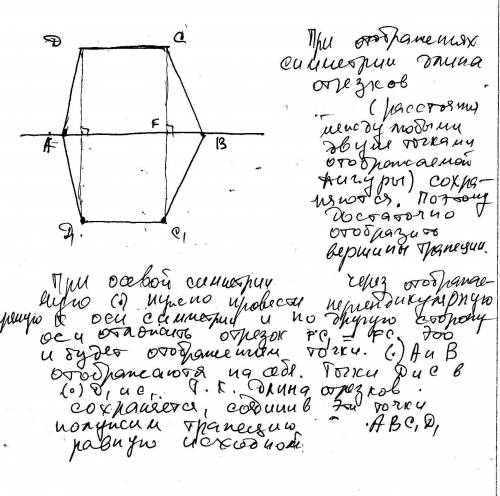 D C
A F B
D₁ C₁
При отображениях
симметрии длина
отрезков
(расстояния
между любыми
двумя точками
отображаемой
фигуры) сохра-
няются. Поэтому
достаточно
отобразить
вершины трапеции.
При осевой симметрии через отображае-
мую (·) нужно провести перпендикулярную
прямую к оси симметрии и по другую сторону
оси отложить отрезок FC₁ = FC. Это
и будет отображением точки. (·) A и B
отображаются на себя. Точки D и C в
(·) D₁ и C₁. Т.к. длина отрезков
сохраняется, соединив эти точки
получим трапецию ABC₁D₁
равную исходной